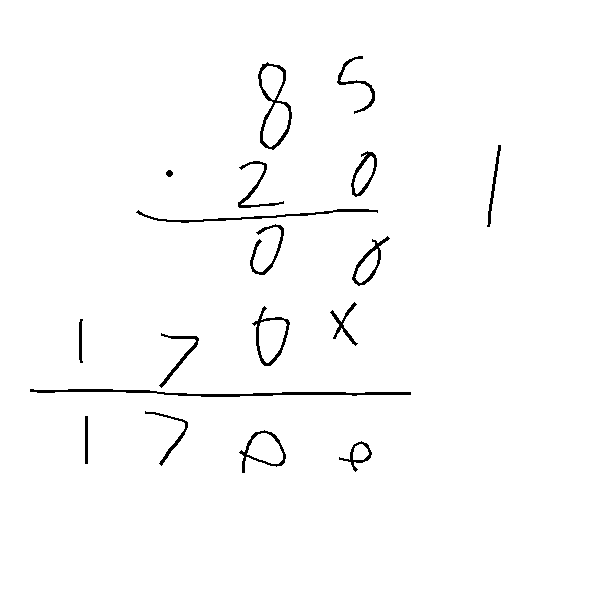 85
· 20 1
00
170x
1700